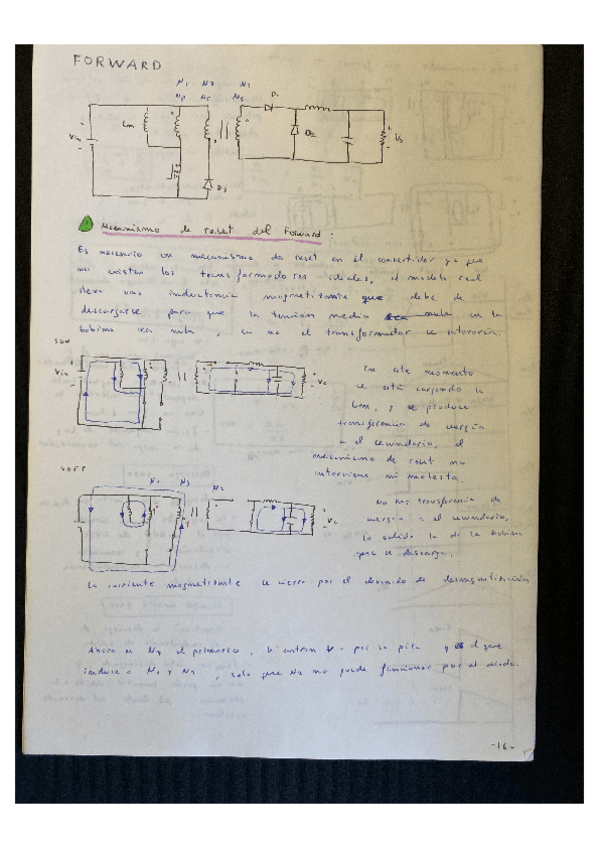 FORWARD
N1 N3 N2
Lm
D1
D2
D3
Vin
Vo
Mecanismo de reset del Forward:
Es necesario un mecanismo de reset en el convertidor ya que
no existen los transformadores ideales, el modelo real
lleva una inductancia magnetizante que debe de
descargarse para que la tensión media sea nula en la
bobina sea nula, si no el transformador se
SON
Vin
Vo
En este momento
se está cargando la
Lm, y se produce
transferencia de energía
a el secundario, el
mecanismo de reset no
interviene ni molesta.
SOFF
N1 N3 N2
No hay transferencia de
energía a el secundario,
la salida la da la bobina
que se descarga.
Vo
La corriente magnetizante se cierra por el devanado de desmagnetización
Ahora es N3 el primario, le entran por la pila y es el que
induce a N1 y N2, solo que N2 no puede funcionar por el diodo.
-16-